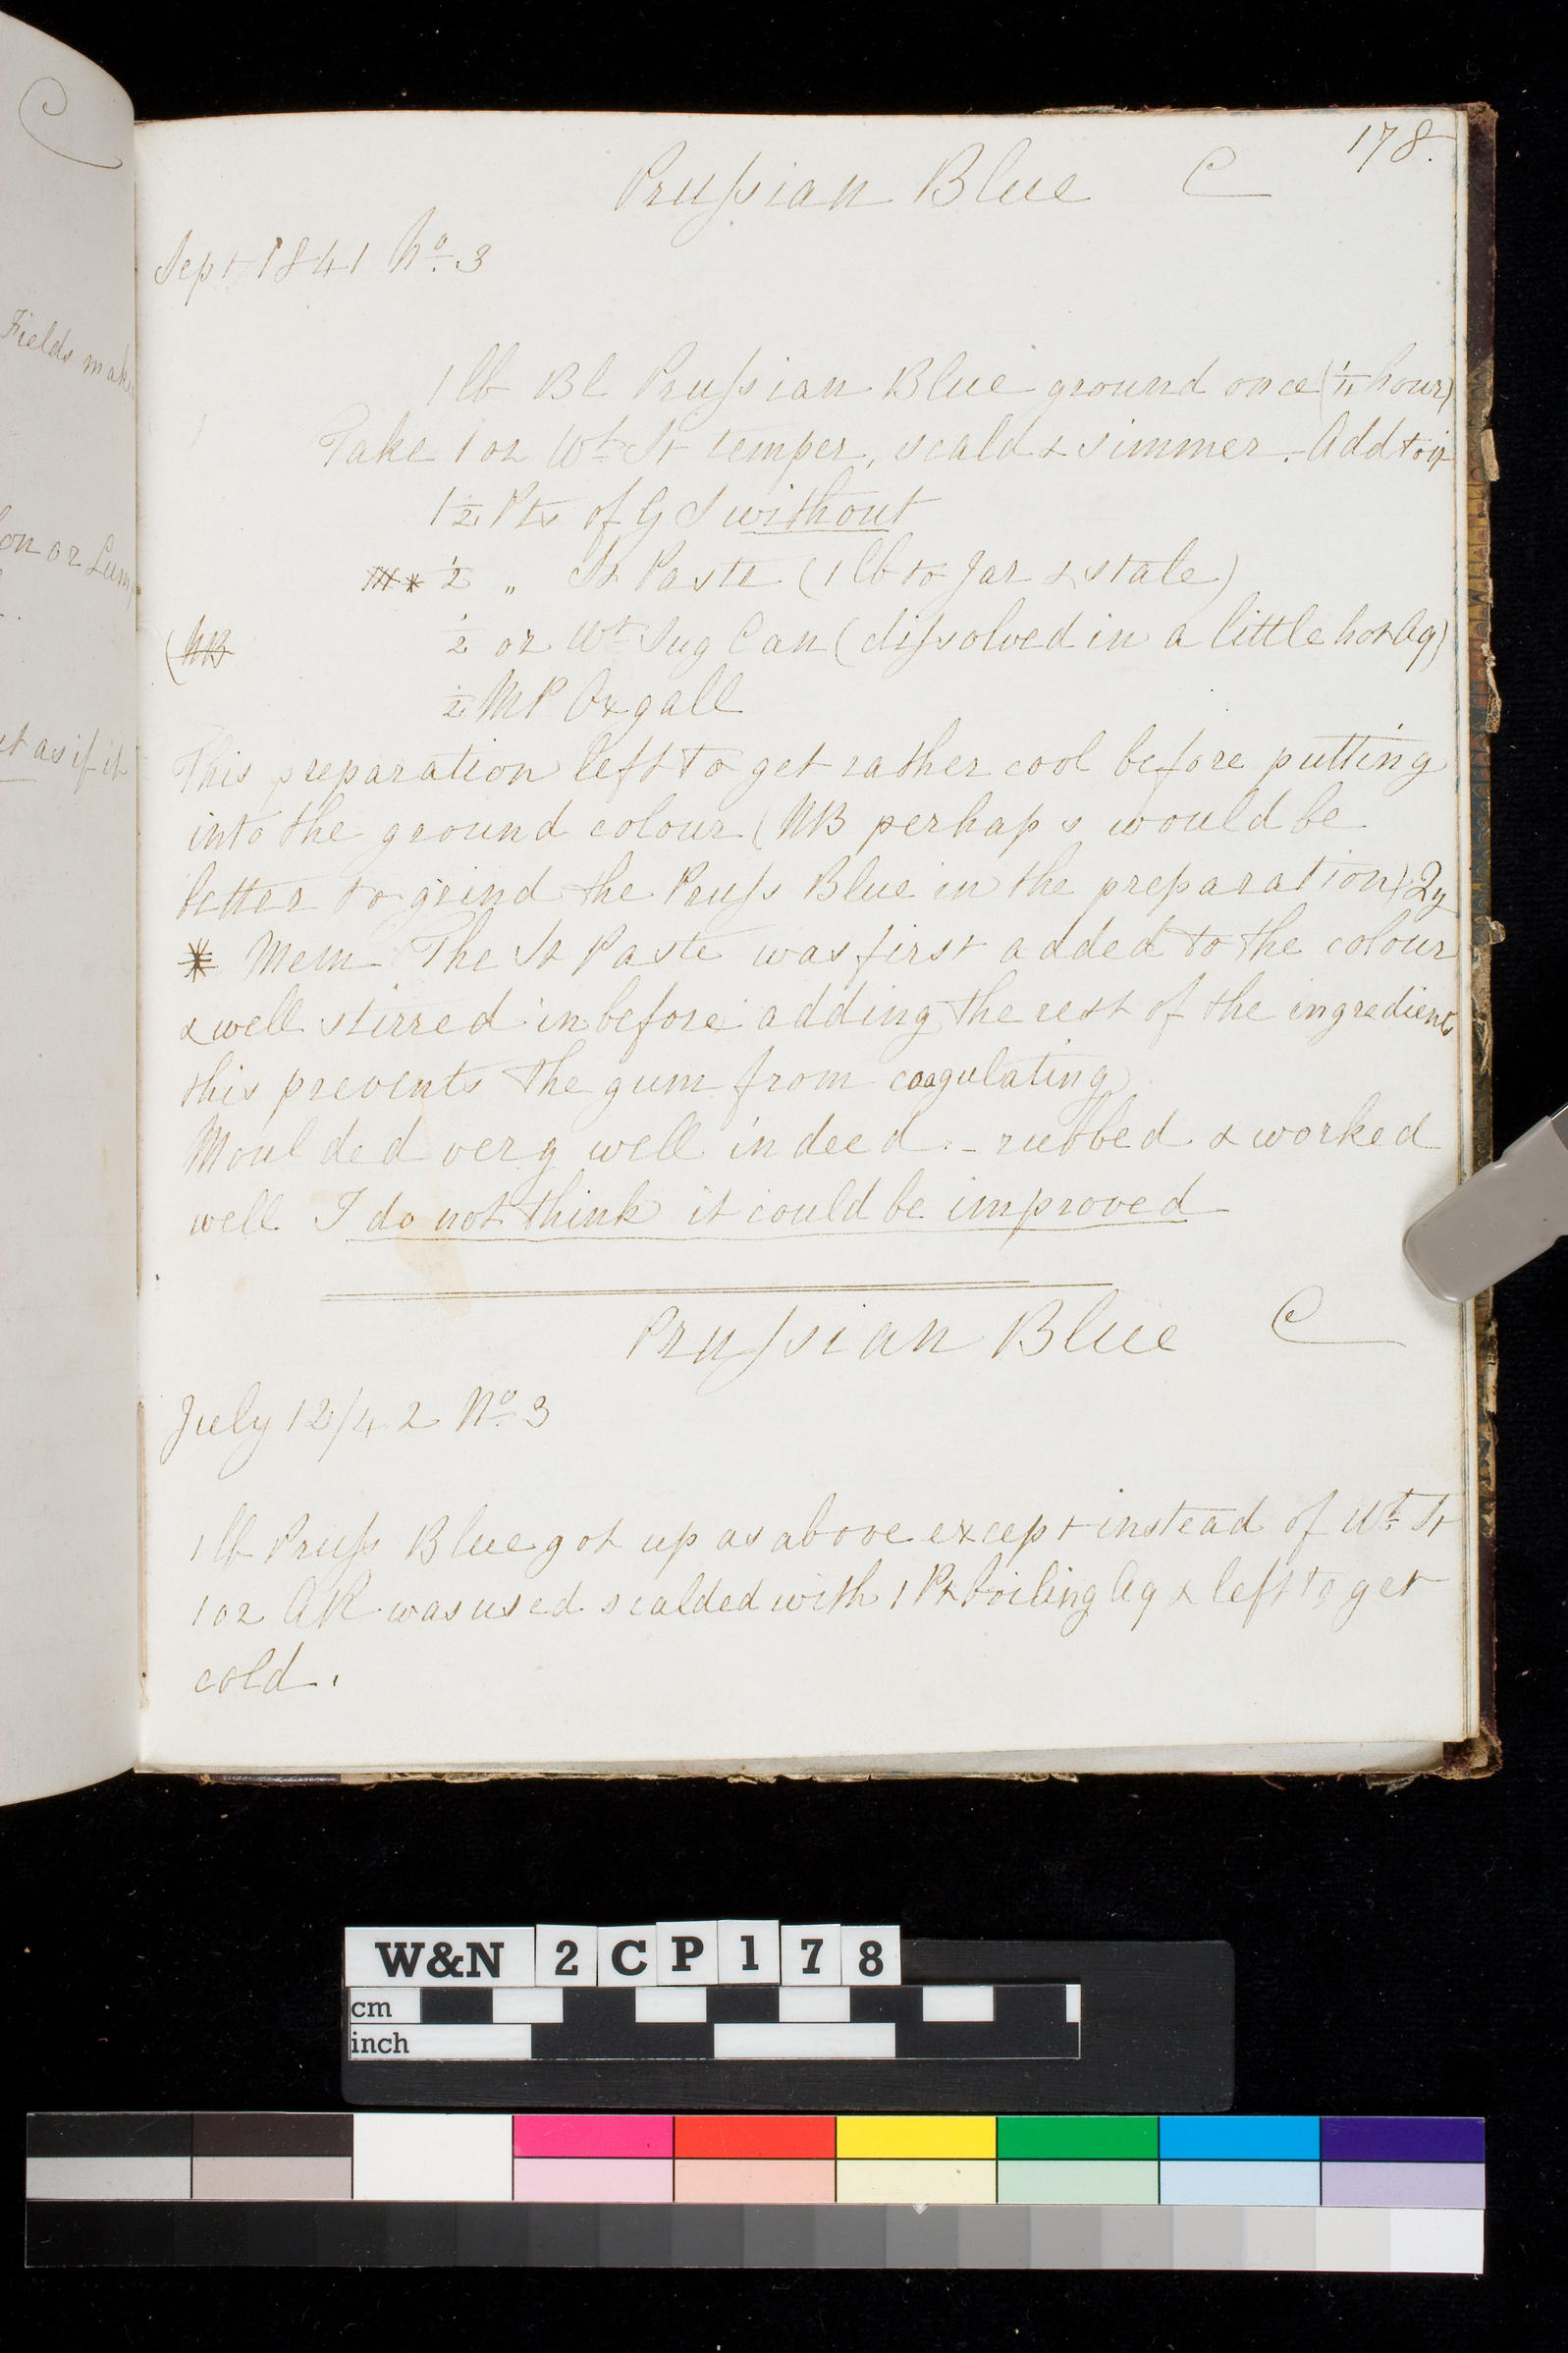 178.
Prussian Blue C
Sept 1841 No. 3
1 lb Bl Prussian Blue ground once (1/4 hour)
Take 1 oz Wt St temper, scald & simmer. Add to it
1 1/2 Pts of G S without
* 1/2 " St Paste (1 lb to Jar & stale)
(NB 1/2 oz Wt Sug Can (dissolved in a little hot Aq)
1/2 MP Oxgall
This preparation left to get rather cool before putting
into the ground colour (NB perhaps would be
better to grind the Pruss Blue in the preparation) Qy
* Mem The St Paste was first added to the colour
& well stirred in before adding the rest of the ingredients
this prevents the gum from coagulating
Moulded very well indeed - rubbed & worked
well I do not think it could be improved
Prussian Blue C
July 12/42 No. 3
1 lb Pruss Blue got up as above except instead of Wt St
1 oz AR was used scalded with 1 Pt boiling Aq & left to get
cold.
C
Fields mak
on or Lum
ut as if it
W&N 2CP178
cm
inch